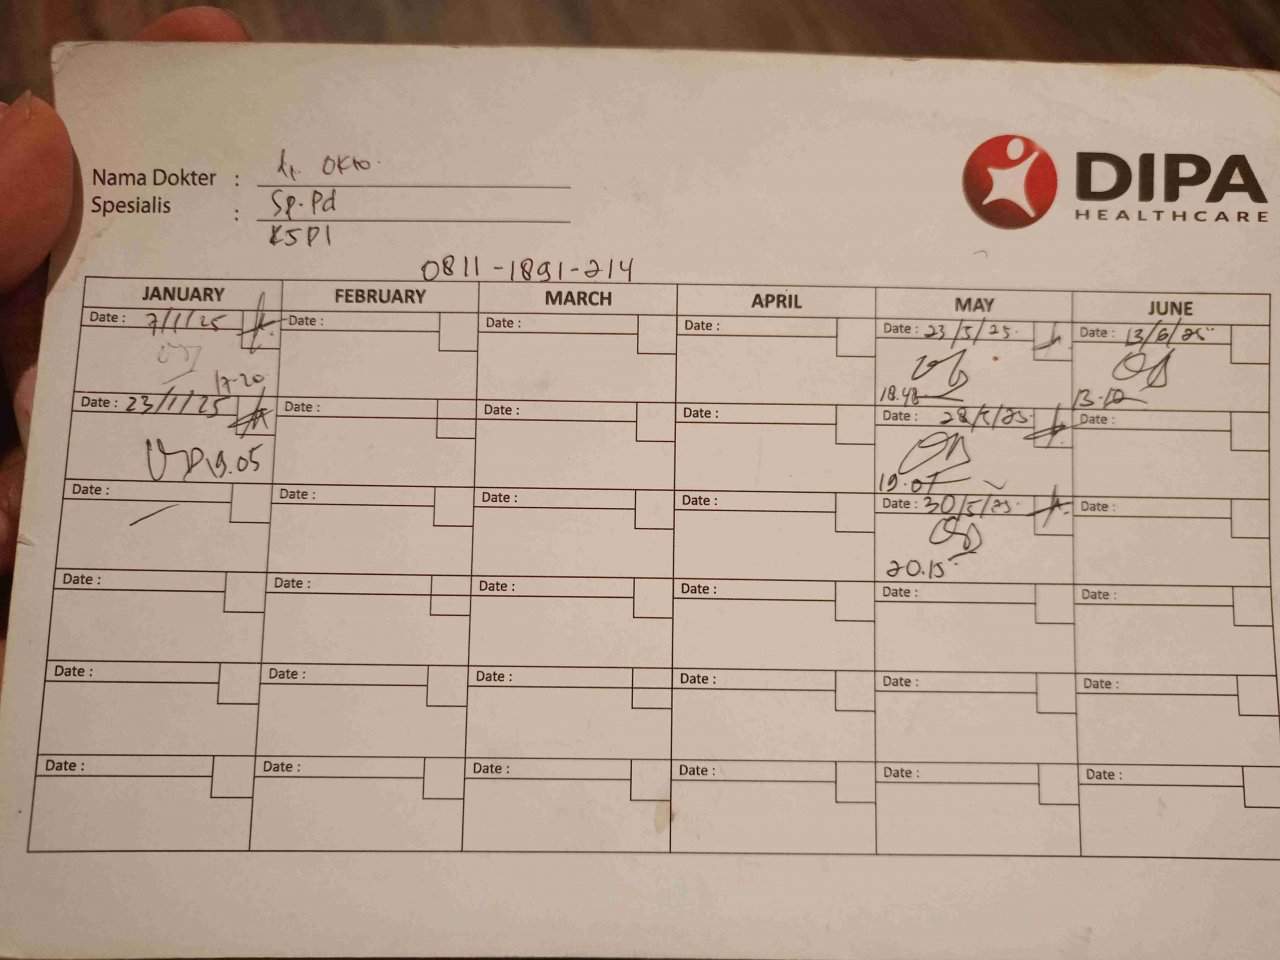 DIPA
HEALTHCARE
Nama Dokter : dr. Okto.
Spesialis : Sp.Pd
KSPI
0811-1891-214
JANUARY FEBRUARY MARCH APRIL MAY JUNE
Date : 7/1/25 Date : Date : Date : Date : 23/5/25. Date : 13/6/25
17-20 18.48 13.10
Date : 23/1/25 Date : Date : Date : Date : 28/5/25. Date :
19.05 19.07
Date : Date : Date : Date : Date : 30/5/25. Date :
20.15
Date : Date : Date : Date : Date : Date :
Date : Date : Date : Date : Date : Date :
Date : Date : Date : Date : Date : Date :